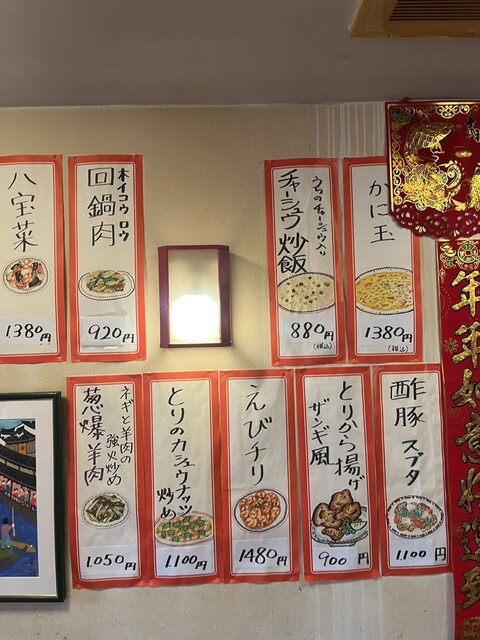 八宝菜
1380円
ホイコウロウ
回鍋肉
920円
うちのチャーシュウ入り
チャーシュウ炒飯
880円
(税込)
かに玉
1380円
(税込)
ネギと羊肉の
強火炒め
葱爆羊肉
1.050円
とりのカシュウナッツ
炒め
1.100円
えびチリ
1480円
とりから揚げ
ザンギ風
900円
酢豚 スブタ
1.100円
年年如意